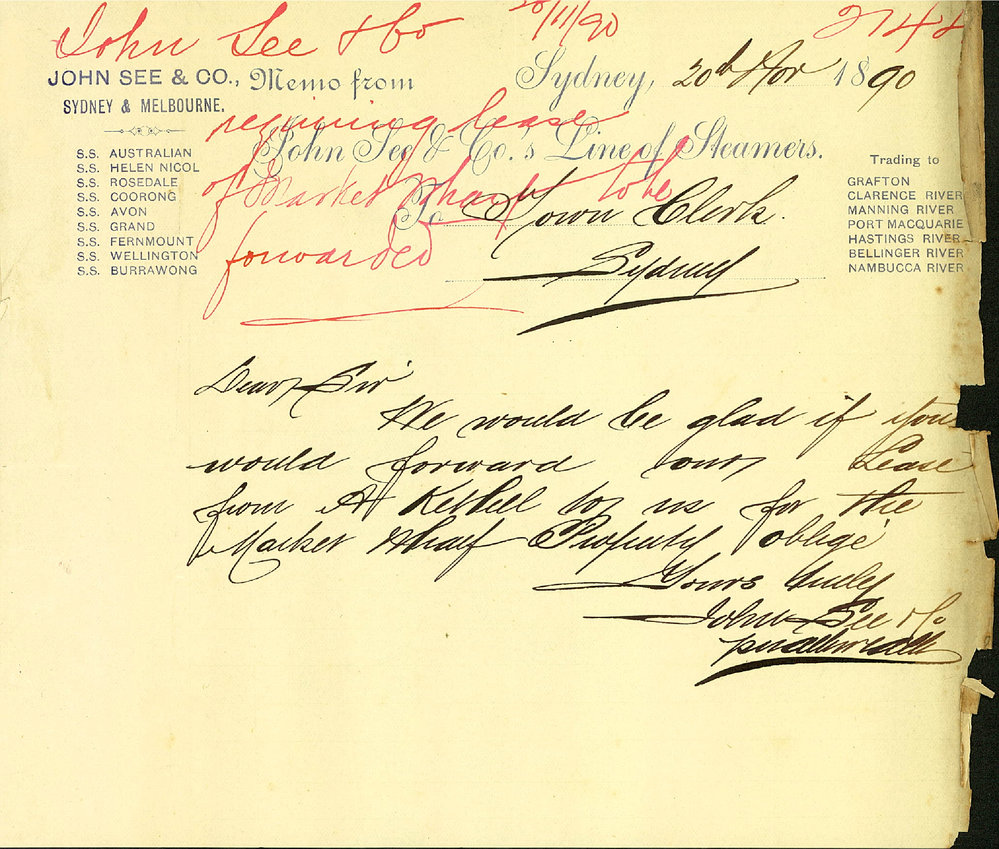 John See & Co 20/11/90 2748
JOHN SEE & CO., Memo from
SYDNEY & MELBOURNE.
Sydney, 20th Nov 1890
requiring lease
of Market Wharf to be
forwarded
John See & Co.'s Line of Steamers.
S.S. AUSTRALIAN
S.S. HELEN NICOL
S.S. ROSEDALE
S.S. COORONG
S.S. AVON
S.S. GRAND
S.S. FERNMOUNT
S.S. WELLINGTON
S.S. BURRAWONG
Trading to
GRAFTON
CLARENCE RIVER
MANNING RIVER
PORT MACQUARIE
HASTINGS RIVER
BELLINGER RIVER
NAMBUCCA RIVER
To Town Clerk.
Sydney
Dear Sir
We would be glad if you
would forward our Lease
from A Kethel to us for the
Market Wharf Property & oblige
Yours truly
John See & Co